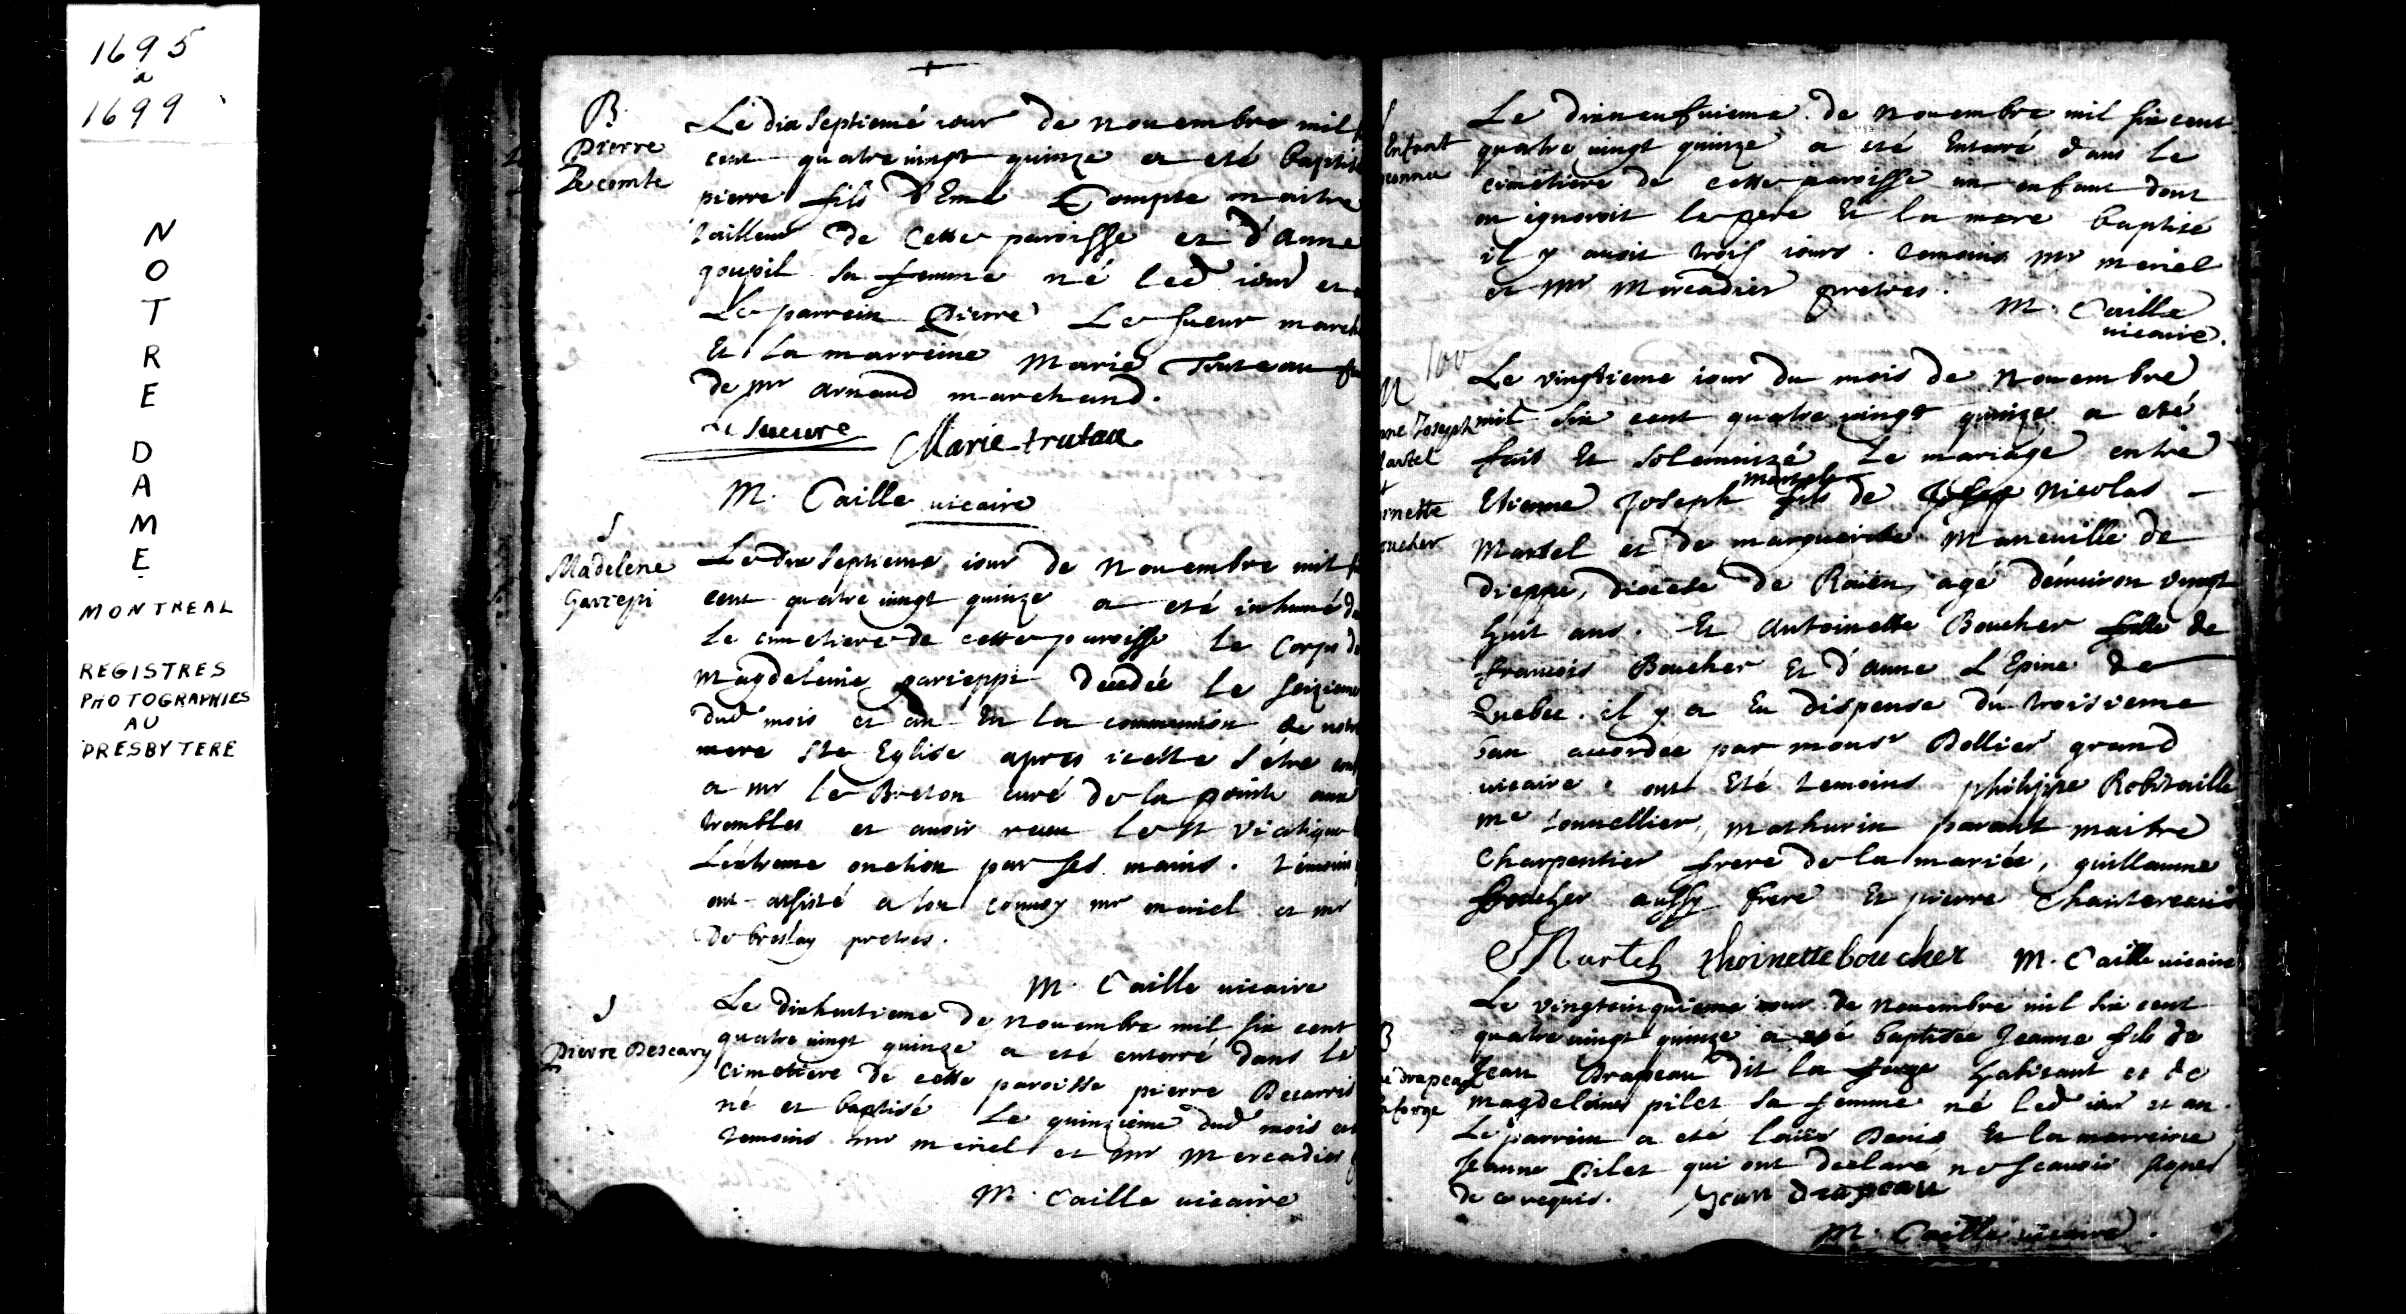 1695
a
1699
N
O
T
R
E
D
A
M
E
MONTREAL
REGISTRES
PHOTOGRAPHIES
AU
PRESBYTERE
B.
Pierre
Le comte
Le dix septiemé iour de nouembre mil
cent quatre vingt quinze a eté baptisé
pierre fils d'Emé Compte maitre
tailleur de cette paroisse et d'anne
goupil sa femme né led. iour et
Le parrein Pierre Le sueur march
Et la marreine Marie Truteau
de mr arnaud marchand.
Le sueure Marie trutaux
M. Caille vicaire
S
Madelene
Gariepi
Le dix septieme iour de nouembre mil
cent quatre vingt quinze a eté inhumé
le cimetiere de cette paroisse le corps
magdeleine garieppi decedée le seizieme
dud mois et an En la communion de notre
mere Ste Eglise apres icelle s'étre
a mr le Breton curé de la pointe aux
trembles et avoir receu le st viatique
L'extreme onction par ses mains. témoins
ont assisté a son convoy mr meriel et mr
de breslay pretres.
M. Caille vicaire
S
Pierre Descary
Le dixhuitieme de nouembre mil six cent
quatre vingt quinze a eté enterré dans le
cimetiere de cette paroisse pierre Decarris
né et baptisé le quinzieme dud mois et
temoins mr meriel et mr mercadier
M. Caille vicaire
Enfant
Le dixneufuieme de nouembre mil six cent
quatre vingt quinze a eté Enterré dans le
cimetiere de cette paroisse un enfant dont
on ignoroit le pere Et la mere baptisé
il y auoit trois iours. temoins mr meriel
et mr Mercadier pretres.
M. Caille
vicaire.
100
M
Joseph
martel
nette
oucher
Le vingtieme iour du mois de Nouembre
mil six cent quatre vingt quinze a eté
fait Et solemnizé Le mariage entre
martel
Etienne Joseph fils de Nicolas
Martel et de marguerite Maneuille de
dieppe, diocese de Roüen, agé d'enuiron vingt
huit ans. Et Antoinette Boucher fille de
francois Boucher Et d'anne L'Epine de
Quebec. il y a Eu dispense du troisieme
ban accordée par monsr Dollier grand
vicaire ont Eté temoins philippe Robitaille
me tonnellier, mathurin parant maitre
Charpentier frere de la mariée, guillaume
Boucher aussy frere Et pierre Chantereau
Martel thoinette boucher M. Caille vicaire
B
drapeau
la forge
Le vingtcinquieme iour de nouembre mil six cent
quatre vingt quinze a eté baptisée Jeanne fils de
Jean Drapeau dit la forge habitant et de
magdeleine pilet sa femme né led iour et an.
Le parrein a eté Louis Denis Et la marreine
Jeanne Pilet qui ont declaré ne scauoir signer
de ce requis. Jean drapeau
M. Caille vicaire.